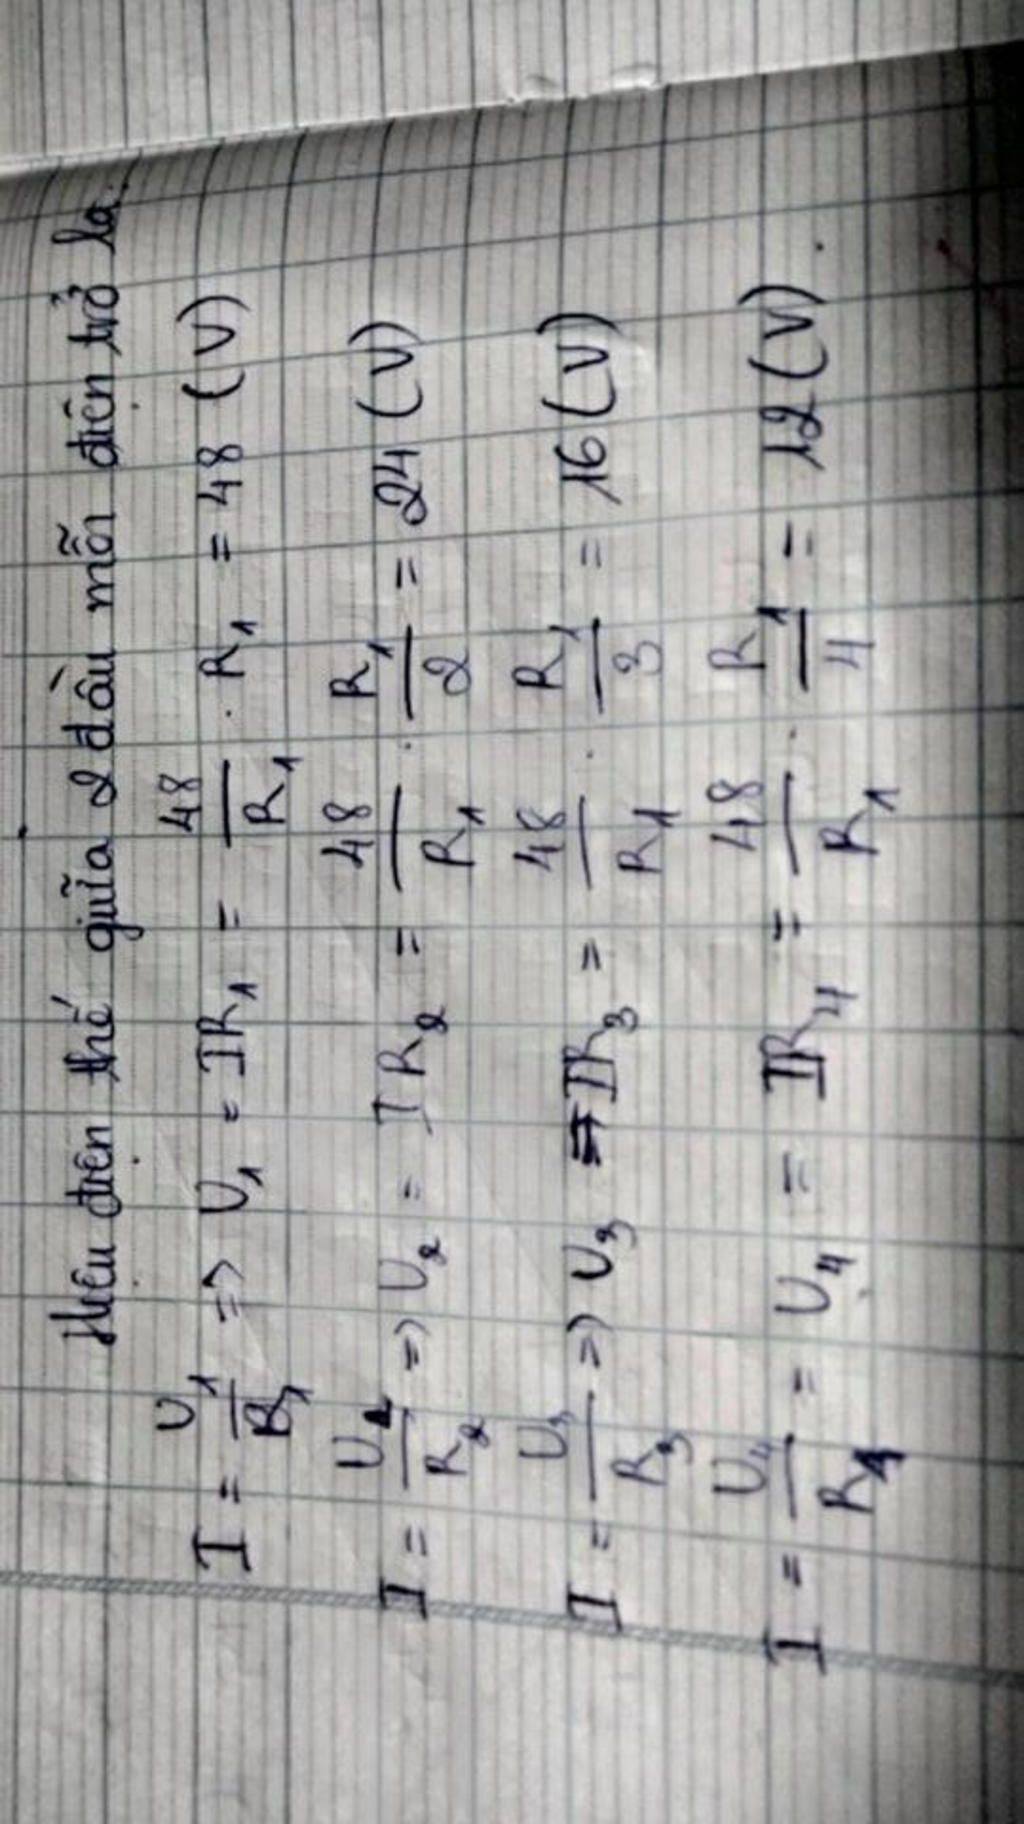 Hiệu điện thế giữa 2 đầu mỗi điện trở là:
I = U₁/R₁ => U₁ = IR₁ = 48/R₁ . R₁ = 48 (V)
I = U₂/R₂ => U₂ = IR₂ = 48/R₁ . R₁/2 = 24 (V)
I = U₃/R₃ => U₃ = IR₃ = 48/R₁ . R₁/3 = 16 (V)
I = U₄/R₄ = U₄ = IR₄ = 48/R₁ . R₁/4 = 12 (V).